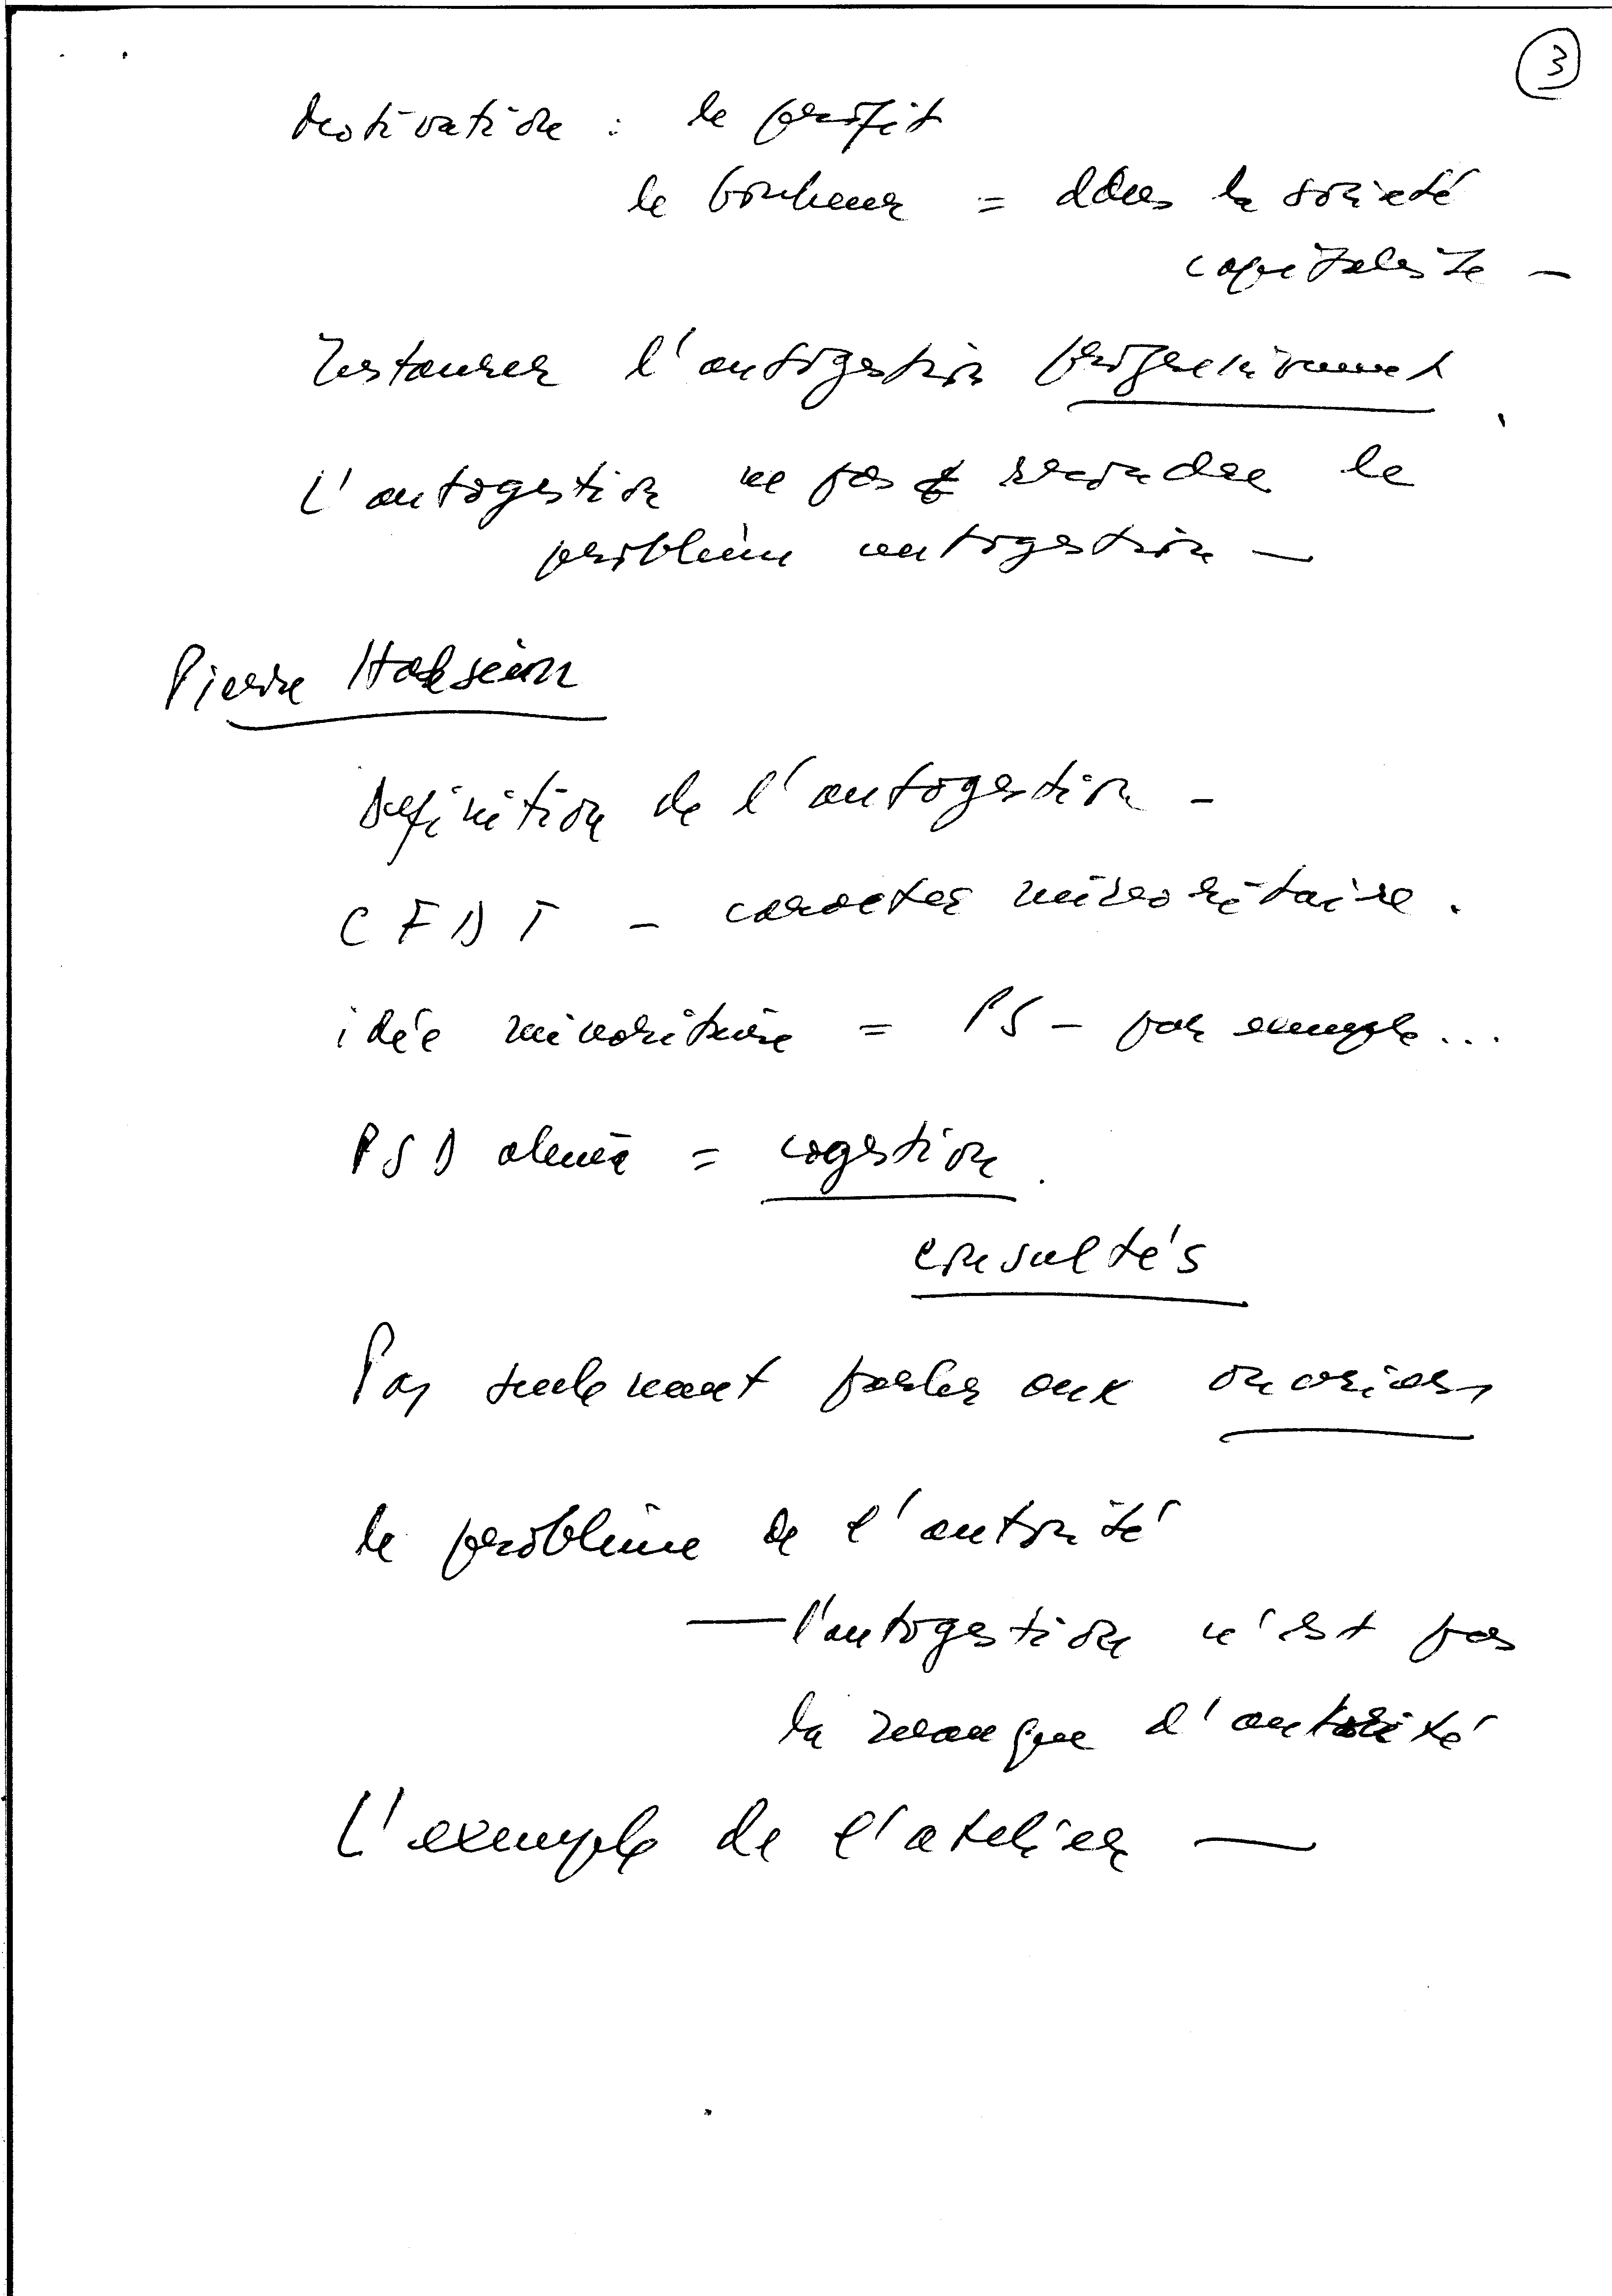 3
Motivation : le profit
le bonheur = dans la société
capitaliste —
Instaurer l'autogestion progressivement
L'autogestion ne pas résoudre le
problème autogestion —
Pierre
Définition de l'autogestion -
CFDT - caractère minoritaire.
idée minoritaire = PS - par exemple...
PSD = cogestion.
consultés
Pas seulement parler aux ouvriers
le problème de l'autorité
— l'autogestion n'est pas
la manque d'autorité
L'exemple de l'atelier —